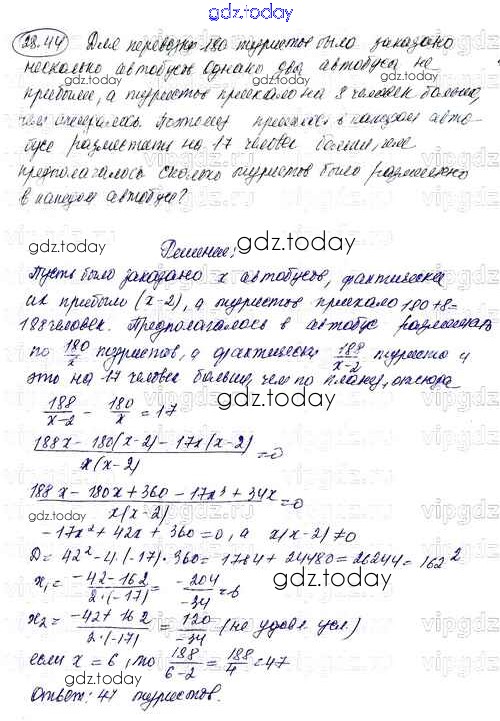 gdz.today
28.44 Для перевозки 180 туристов было заказано
несколько автобусов однако два автобуса не
прибыли, а туристов приехало на 8 человек больше,
чем ожидалось. Поэтому пришлось в каждом авто-
бусе разместить на 17 человек больше, чем
предполагалось сколько туристов было размещено
в каждом автобусе?
Решение:
Пусть было заказано x автобусов, фактически
их прибыли (x-2), а туристов приехало 180+8=
188 человек. Предполагалось в автобус размещать
по 180/x туристов, а фактически 188/x-2 туриста и
это на 17 человек больше, чем по плану, отсюда
188/x-2 - 180/x = 17
188x - 180(x-2) - 17x(x-2)/x(x-2) = 0
188x - 180x + 360 - 17x² + 34x/x(x-2) = 0
-17x² + 42x + 360 = 0, а x(x-2) ≠ 0
D = 42² - 4·(-17)·360 = 1784 + 24480 = 26244 = 162²
x₁ = -42-162/2·(-17) = -204/-34 = 6
x₂ = -42+162/2·(-17) = 120/-34 (не удовл. усл.)
если x = 6, то 188/6-2 = 188/4 = 47
Ответ: 47 туристов.
gdz.today
gdz.today
gdz.today
gdz.today
gdz.today
gdz.today
gdz.today
gdz.today